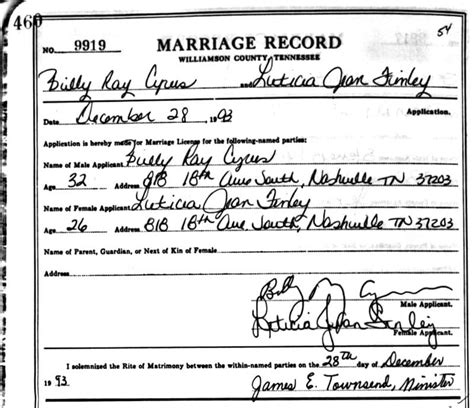 460
54
NO. 9919 MARRIAGE RECORD
WILLIAMSON COUNTY, TENNESSEE
Billy Ray Cyrus and Leticia Jean Finley
Date December 28 1993 Application.
Application is hereby made for Marriage License for the following-named parties:
Name of Male Applicant Billy Ray Cyrus
Age 32 Address 818 18th Ave South, Nashville TN 37203
Name of Female Applicant Leticia Jean Finley
Age 26 Address 818 18th Ave. South, Nashville TN 37203
Name of Parent, Guardian, or Next of Kin of Female
Address
Billy Cyrus
Male Applicant.
Leticia Jean Finley
Female Applicant.
I solemnized the Rite of Matrimony between the within-named parties on the 28th day of December
1993. James E. Townsend, Minister